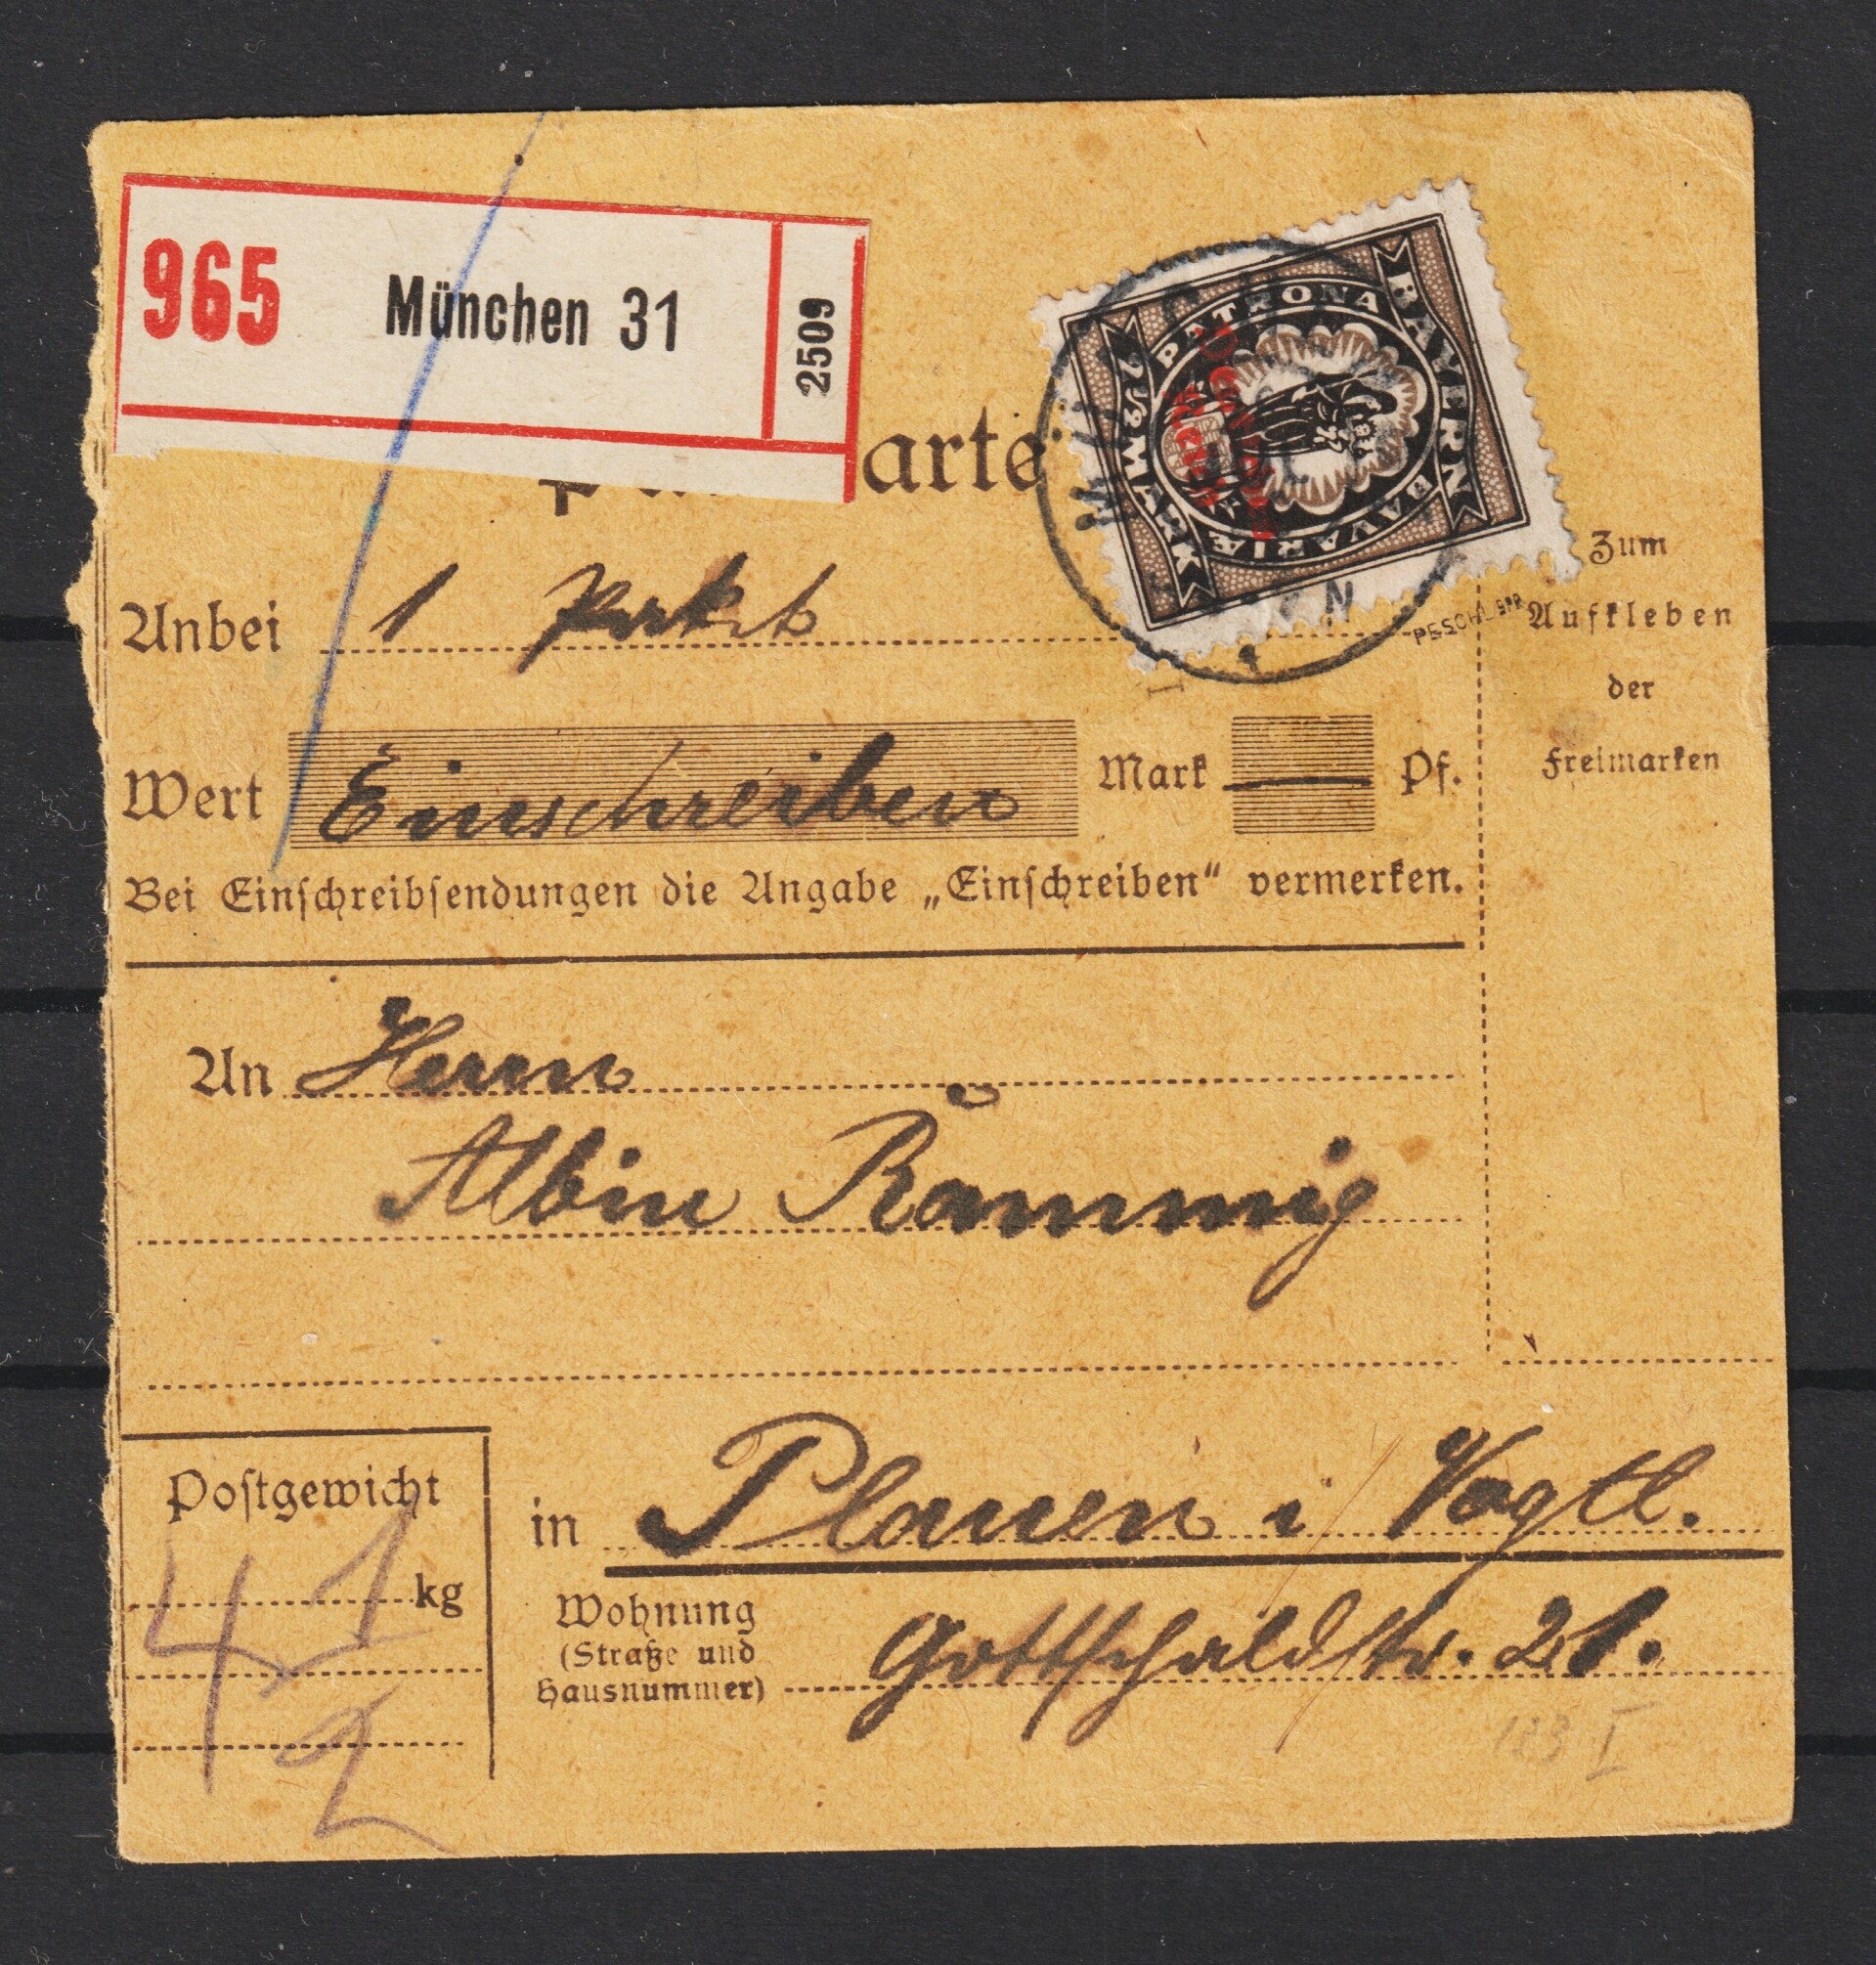 965 München 31 2509
arte
BAYERN
PATRONA BAVARIÆ
Deutsches Reich
PESCHL BPP
Anbei 1 Paket
Wert Einschreiben Mark — Pf.
Bei Einschreibsendungen die Angabe „Einschreiben“ vermerken.
Zum
Aufkleben
der
Freimarken
An Herrn
Albin Rammig
Postgewicht
kg
in Plauen i/ Vogtl.
Wohnung
(Straße und
Hausnummer)
Gottschaldstr. 21.
4 1
2
123 I